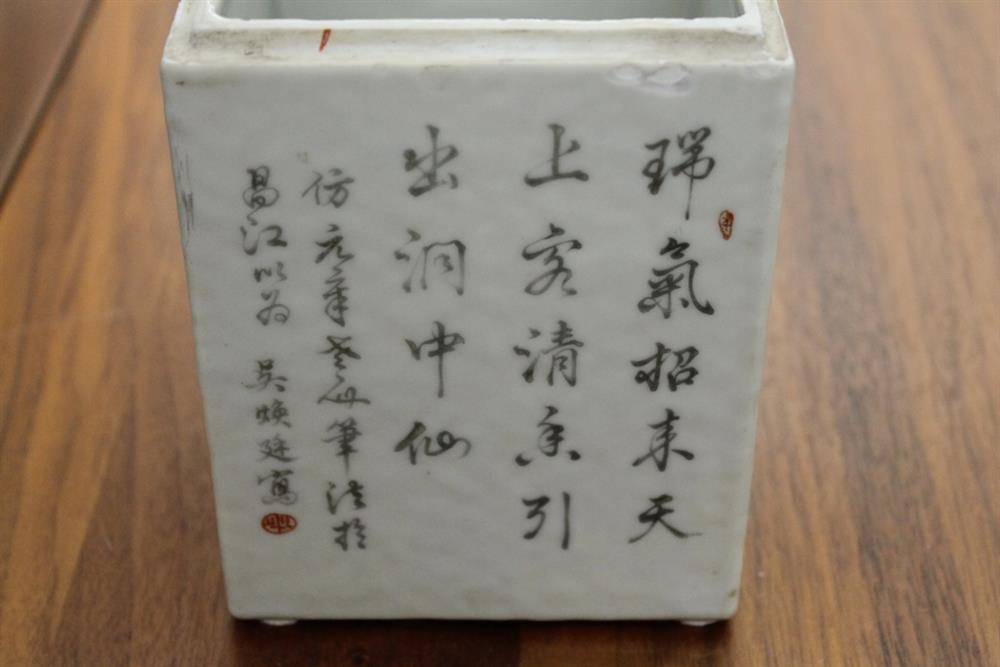 瑞氣招来天
上客清香引
出洞中仙
仿元章老人筆法於
昌江以為 吳煥廷寫